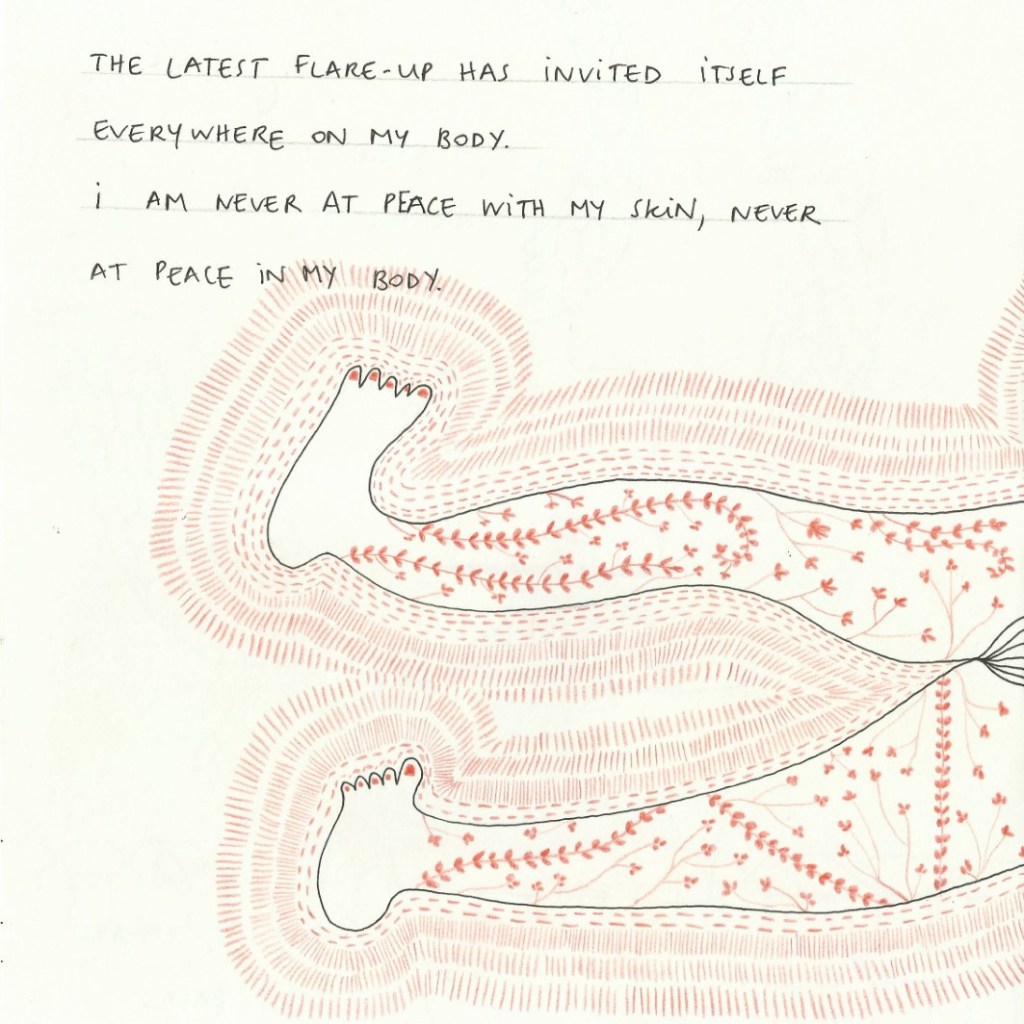 THE LATEST FLARE-UP HAS iNViTED iTSELF
EVERYWHERE ON MY BODY.
i AM NEVER AT PEACE WiTH MY SKiN, NEVER
AT PEACE iN MY BODY.